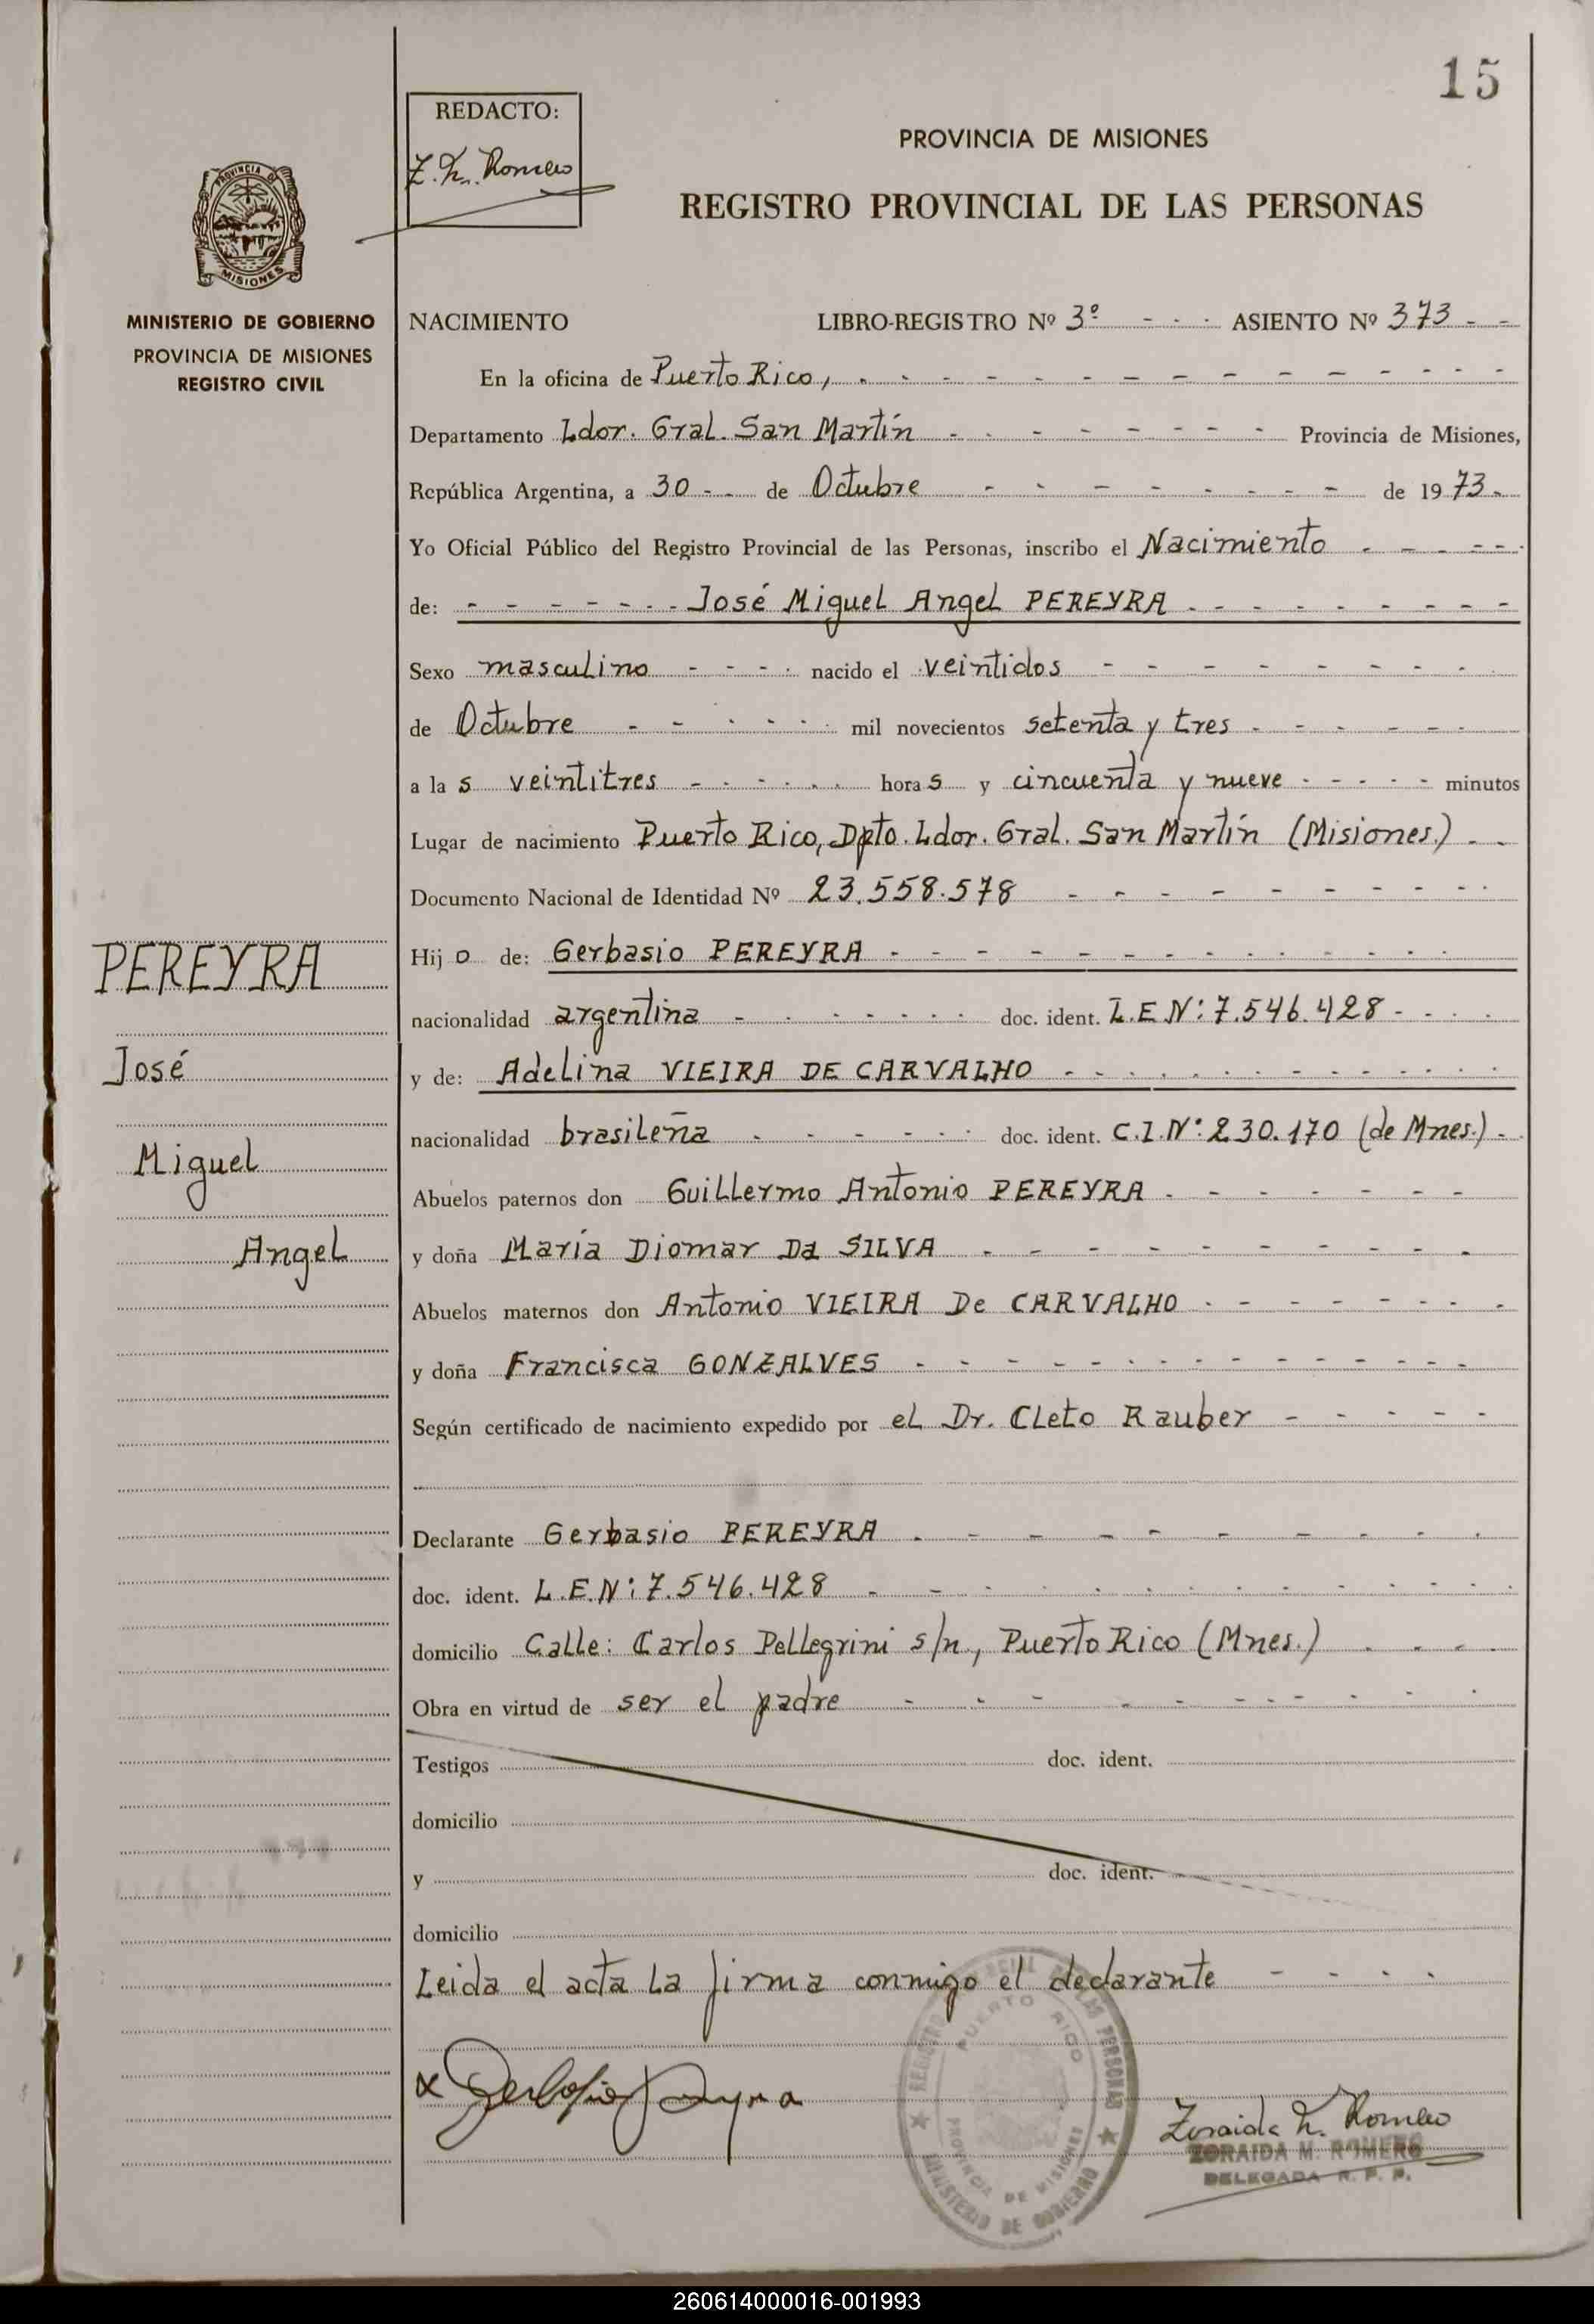 15
REDACTO:
Z. M. Romero
PROVINCIA DE MISIONES
REGISTRO PROVINCIAL DE LAS PERSONAS
PROVINCIA DE
MISIONES
MINISTERIO DE GOBIERNO
PROVINCIA DE MISIONES
REGISTRO CIVIL
NACIMIENTO LIBRO-REGISTRO Nº 3º - - - ASIENTO Nº 373 - -
En la oficina de Puerto Rico, - - - - - - - - - - - -
Departamento Ldor. Gral. San Martín - - - - - - - - Provincia de Misiones,
República Argentina, a 30 - - de Octubre - - - - - - - de 1973 -
Yo Oficial Público del Registro Provincial de las Personas, inscribo el Nacimiento - - - - -
de: - - - - - - - José Miguel Angel PEREYRA - - - - - - - -
Sexo masculino - - - - nacido el veintidos - - - - - - - -
de Octubre - - - - - - mil novecientos setenta y tres - - - - - -
a la s veintitres - - - - - - hora s y cincuenta y nueve - - - - - minutos
Lugar de nacimiento Puerto Rico, Dpto. Ldor. Gral. San Martín (Misiones.) - -
Documento Nacional de Identidad Nº 23.558.578 - - - - - - - - -
Hij o de: Gerbasio PEREYRA - - - - - - - - - - - -
nacionalidad argentina - - - - - - - doc. ident. L.E Nº: 7.546.428 - - - -
y de: Adelina VIEIRA DE CARVALHO - - - - - - - - - - - -
nacionalidad brasileña - - - - - - doc. ident. C.I.Nº: 230.170 (de Mnes.) - -
Abuelos paternos don Guillermo Antonio PEREYRA - - - - - - -
y doña María Diomar Da SILVA - - - - - - - - - -
Abuelos maternos don Antonio VIEIRA De CARVALHO - - - - - - - -
y doña Francisca GONZALVES - - - - - - - - - - - - -
Según certificado de nacimiento expedido por el Dr. Cleto Rauber - - - - -
Declarante Gerbasio PEREYRA - - - - - - - - - -
doc. ident. L.E.Nº: 7.546.428 - - - - - - - - - - - - -
domicilio Calle: Carlos Pellegrini s/n., Puerto Rico (Mnes.) - - - -
Obra en virtud de ser el padre - - - - - - - - - -
Testigos doc. ident.
domicilio
y doc. ident.
domicilio
Leida el acta la firma conmigo el declarante - - - -
PEREYRA
José
Miguel
Angel
x Gerbasio Pereyra
REGISTRO PROVINCIAL DE LAS PERSONAS
PUERTO RICO
PROVINCIA DE MISIONES
MINISTERIO DE GOBIERNO
Zoraida M. Romero
ZORAIDA M. ROMERO
DELEGADA R. P. P.
260614000016-001993